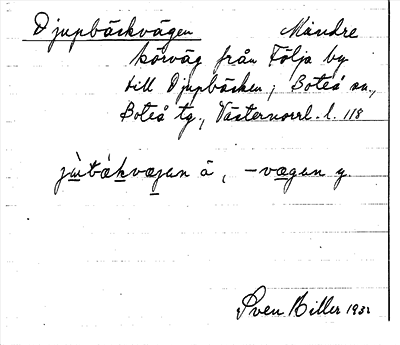 Djupbäckvägen Mindre
körväg från Följa by
till Djupbäcken, Boteå sn.,
Boteå tg., Västernorrl. l. 118
jùtbäkvæjan å, -vægan y.
Sven Biller 1932